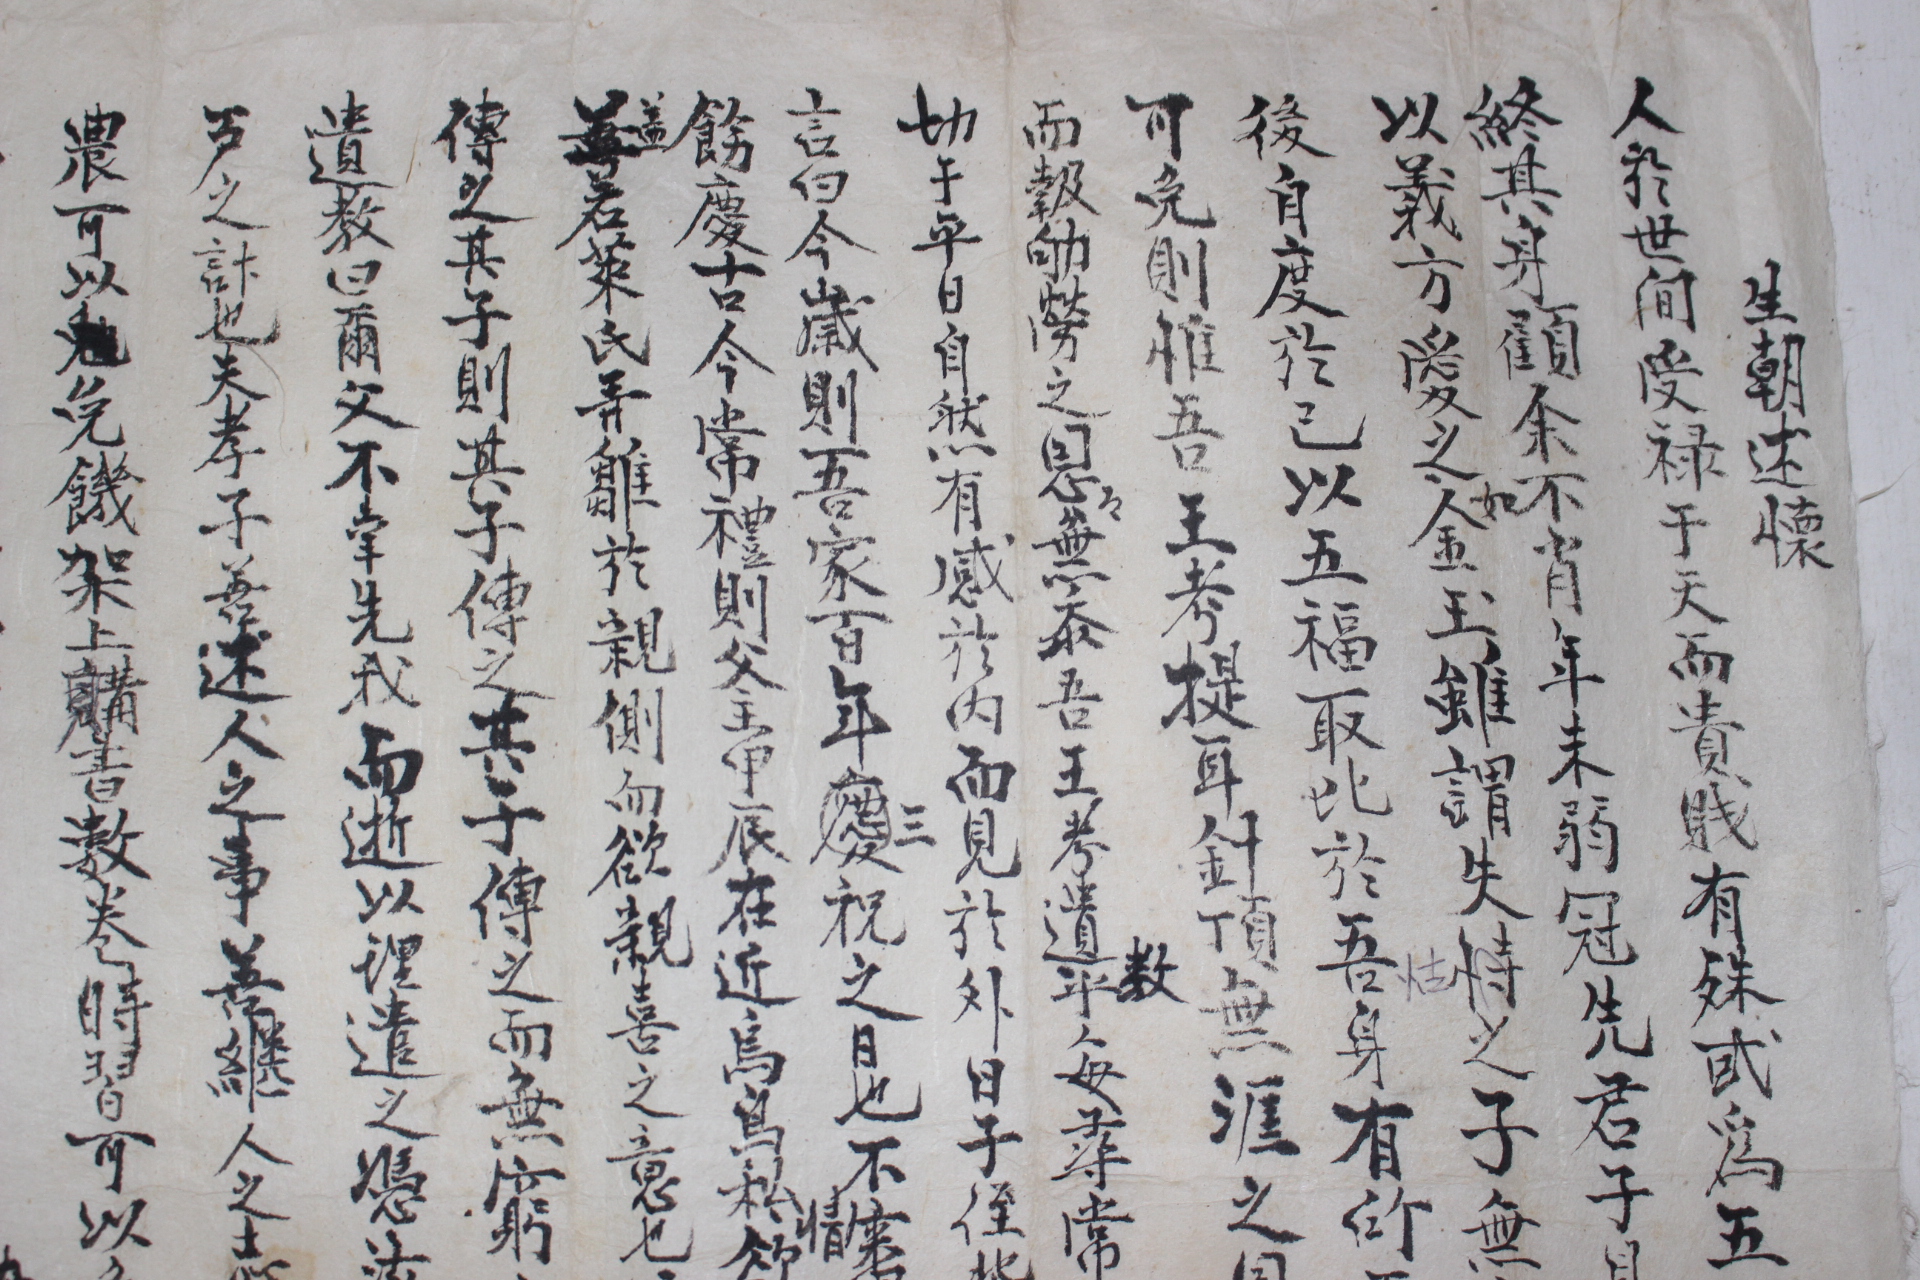 生朝述懷
人於世間受祿于天而貴賤有殊或爲五
終其身顧余不肖年未弱冠先君子
以義方愛之如金玉雖謂失恃怙之子無
後自度於己以五福取比於吾身有所
可免則惟吾王考提耳針頂無涯之恩
而報劬勞之恩無忝吾王考遺平每尋常
切于平日自然有感於內而見於外日子侄
言曰今歲則吾家百年三慶祝之日也不
餙慶古今常禮則父主甲辰在近烏鳥私情
盖若萊氏弄雛於親側而欲親喜之意也
傳之其子則其子傳之其子傳之而無窮
遺敎曰爾父不幸先我而逝以理遣之憑
之計也夫孝子善述人之事善繼人之志
農可以免饑架上購書數卷時習可以